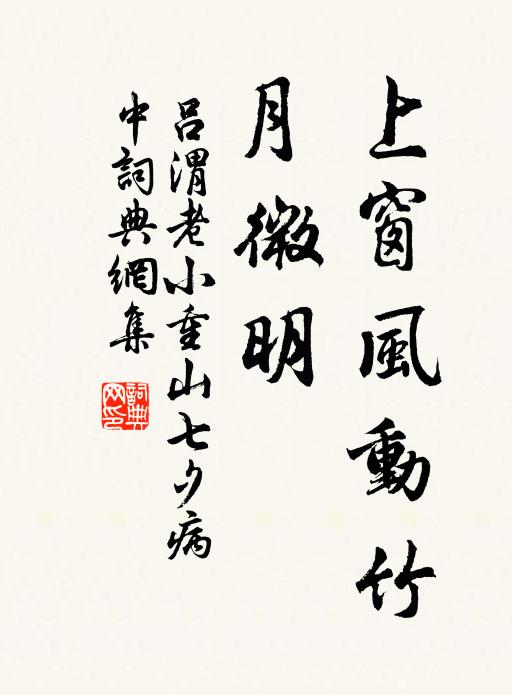 上窗風動竹
月微明
呂渭老小重山七夕病
中詞典網集
詞典网印